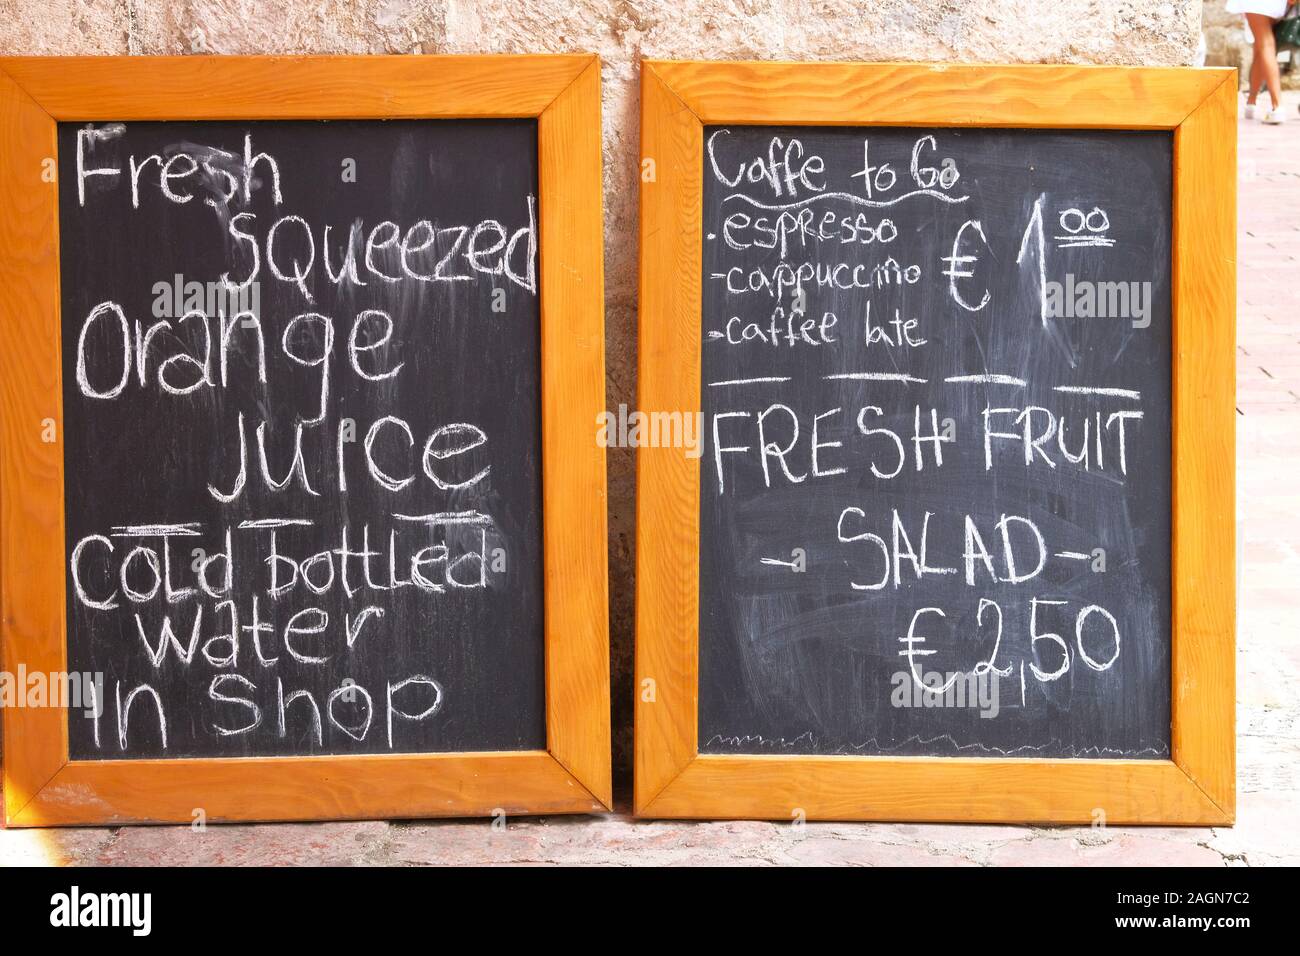 Fresh
squeezed
Orange
Juice
Cold bottled
water
in shop
Caffe to Go
• espresso
- cappuccino
- caffee late
€ 1 00
FRESH FRUIT
- SALAD -
€ 2,50
alamy
Image ID: 2AGN7C2
www.alamy.com